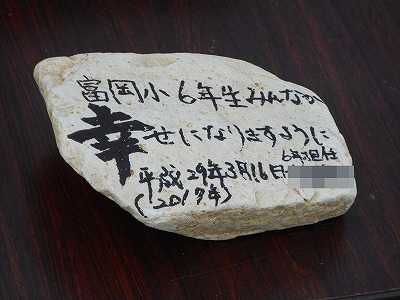 富岡小6年生みんなが
幸せになりますように
6年担任
平成29年3月16日
(2017年)